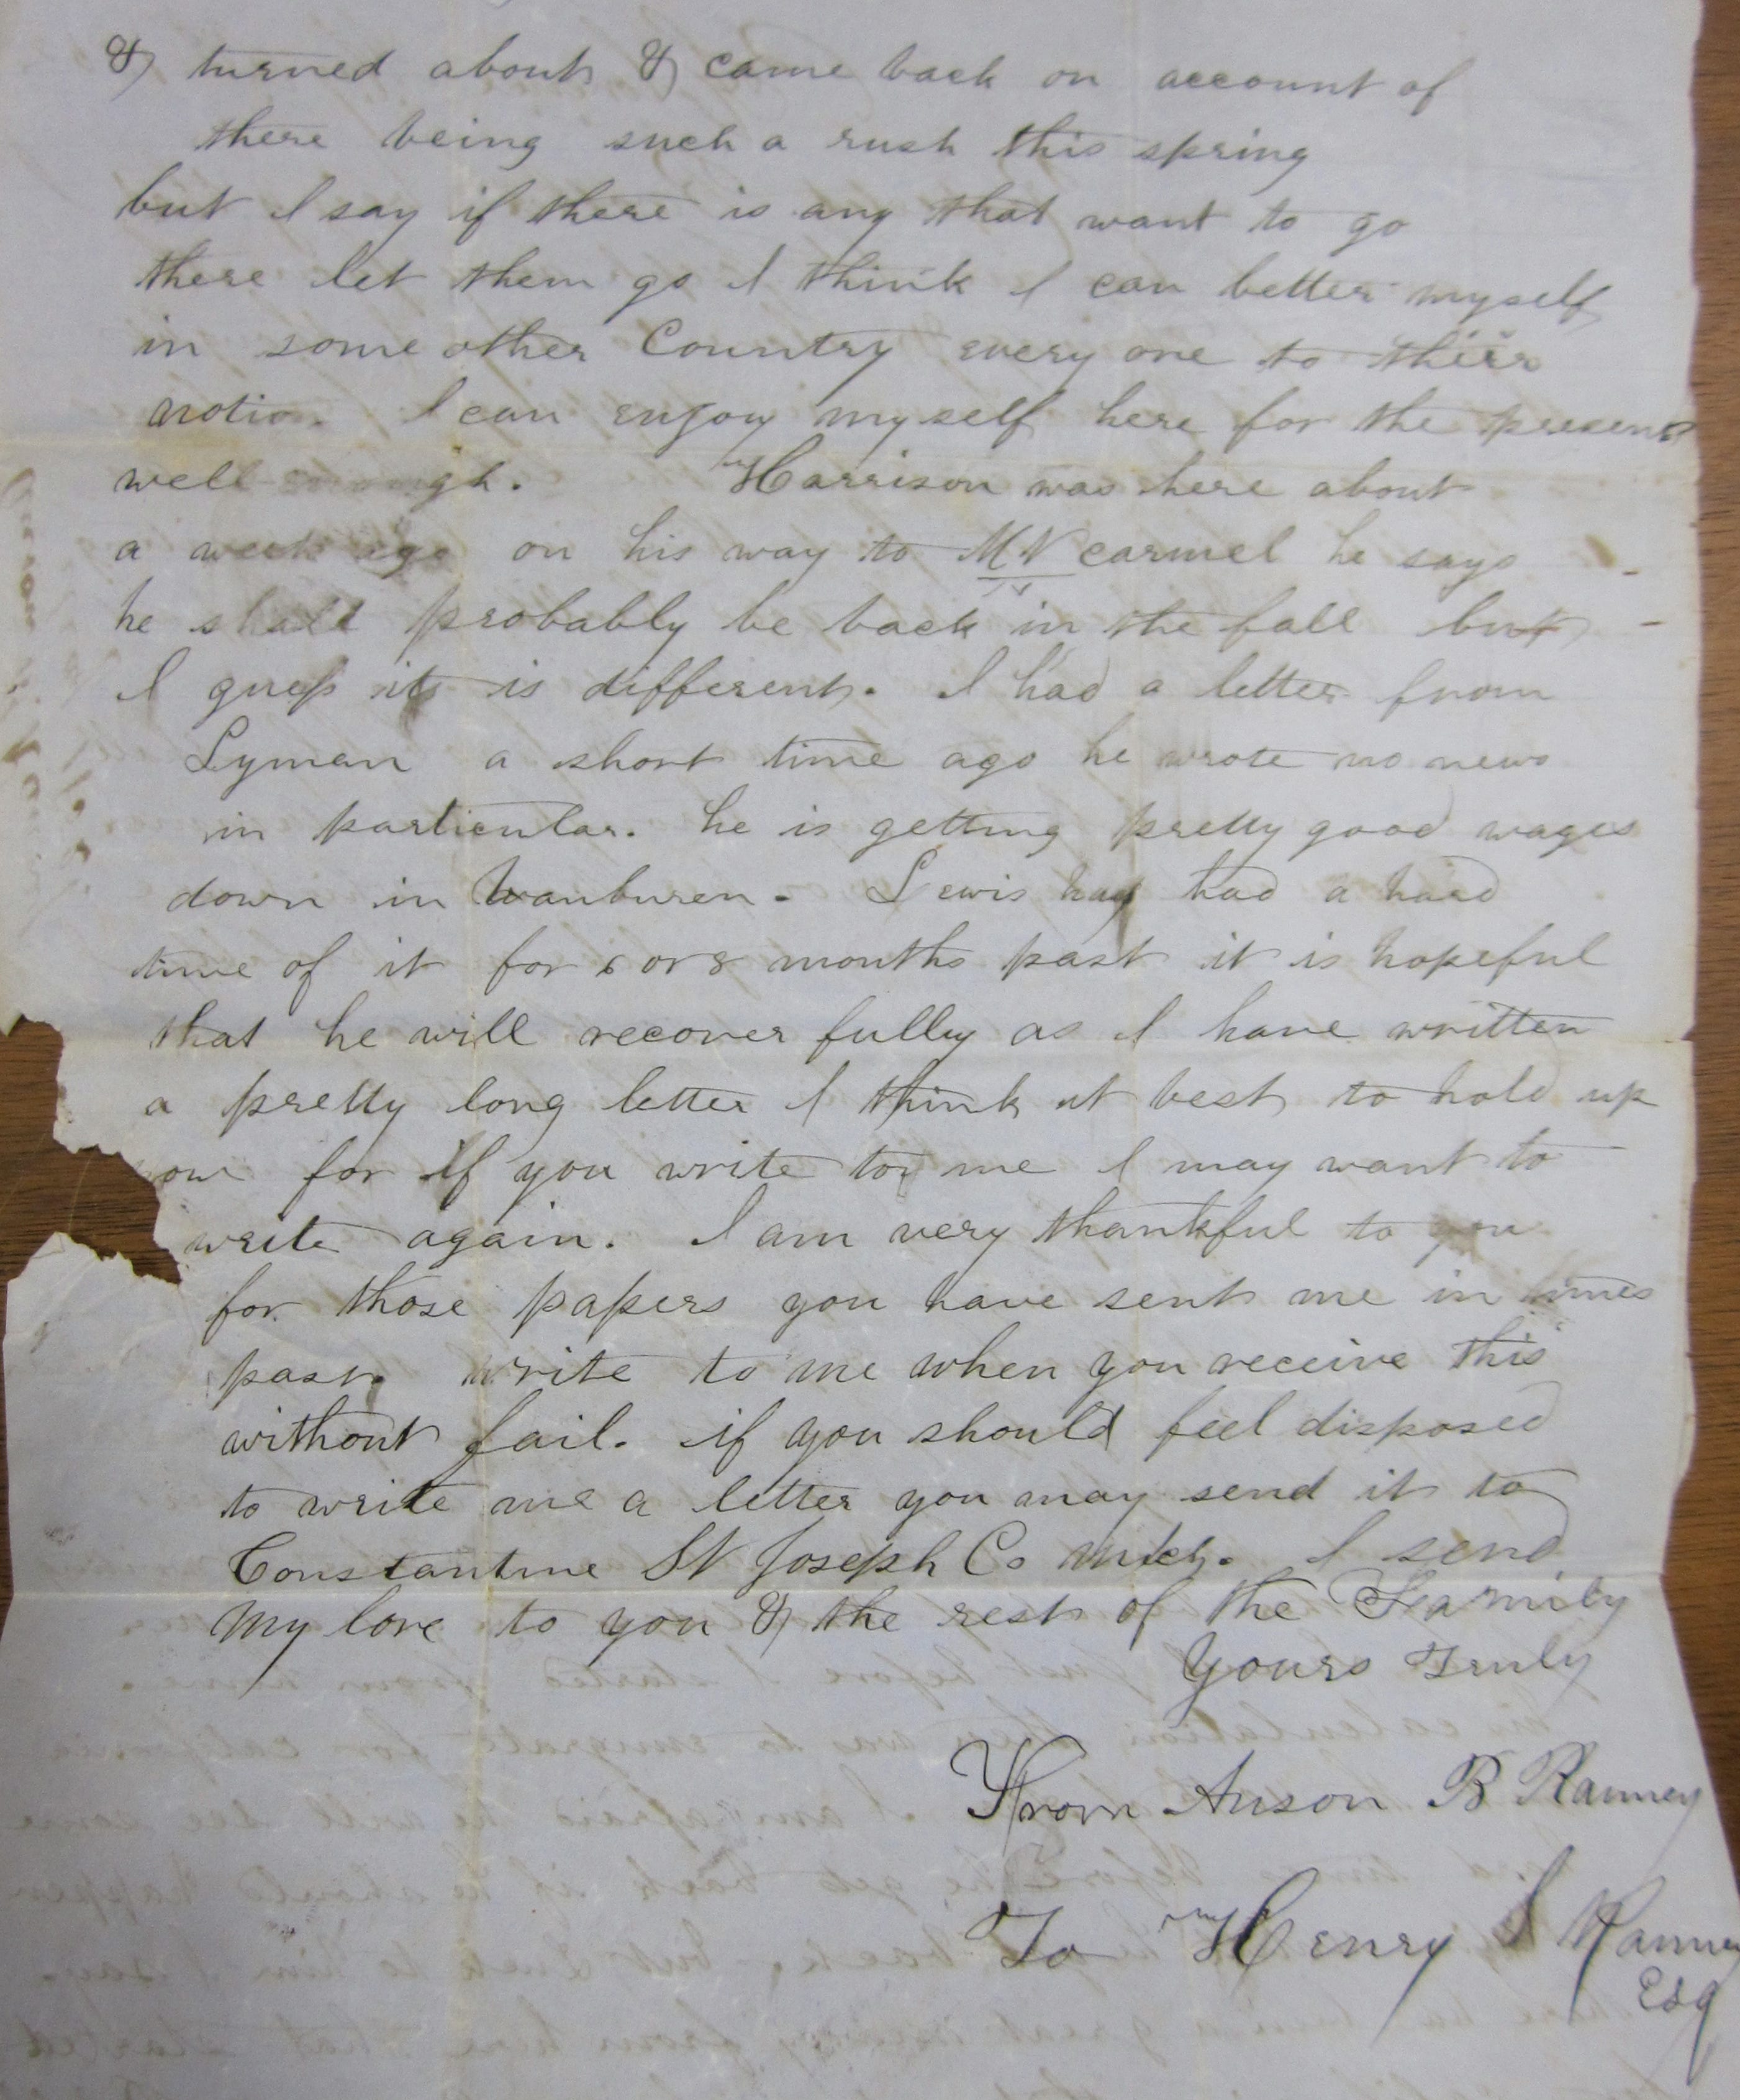 & turned about & came back on account of
there being such a rush this spring
but I say if there is any that want to go
there let them go I think I can better myself
in some other Country every one to their
notio. I can enjoy myself here for the present
well enough. Harrison was here about
a week ago on his way to Mt carmel he says
he shall probably be back in the fall but
I guess it is different. I had a letter from
Lyman a short time ago he wrote no news
in particular. he is getting pretty good wages
down in Vanburen. Lewis has had a hard
time of it for 6 or 8 months past it is hopeful
that he will recover fully as I have written
a pretty long letter I think it best to hold up
now for if you write to me I may want to
write again. I am very thankful to you
for those papers you have sent me in times
past. write to me when you receive this
without fail. if you should feel disposed
to write me a letter you may send it to
Constantine St Joseph Co Mich. I send
my love to you & the rest of the Family
Yours Truly
From Anson B Ranney
To Henry S Ranney
Esq